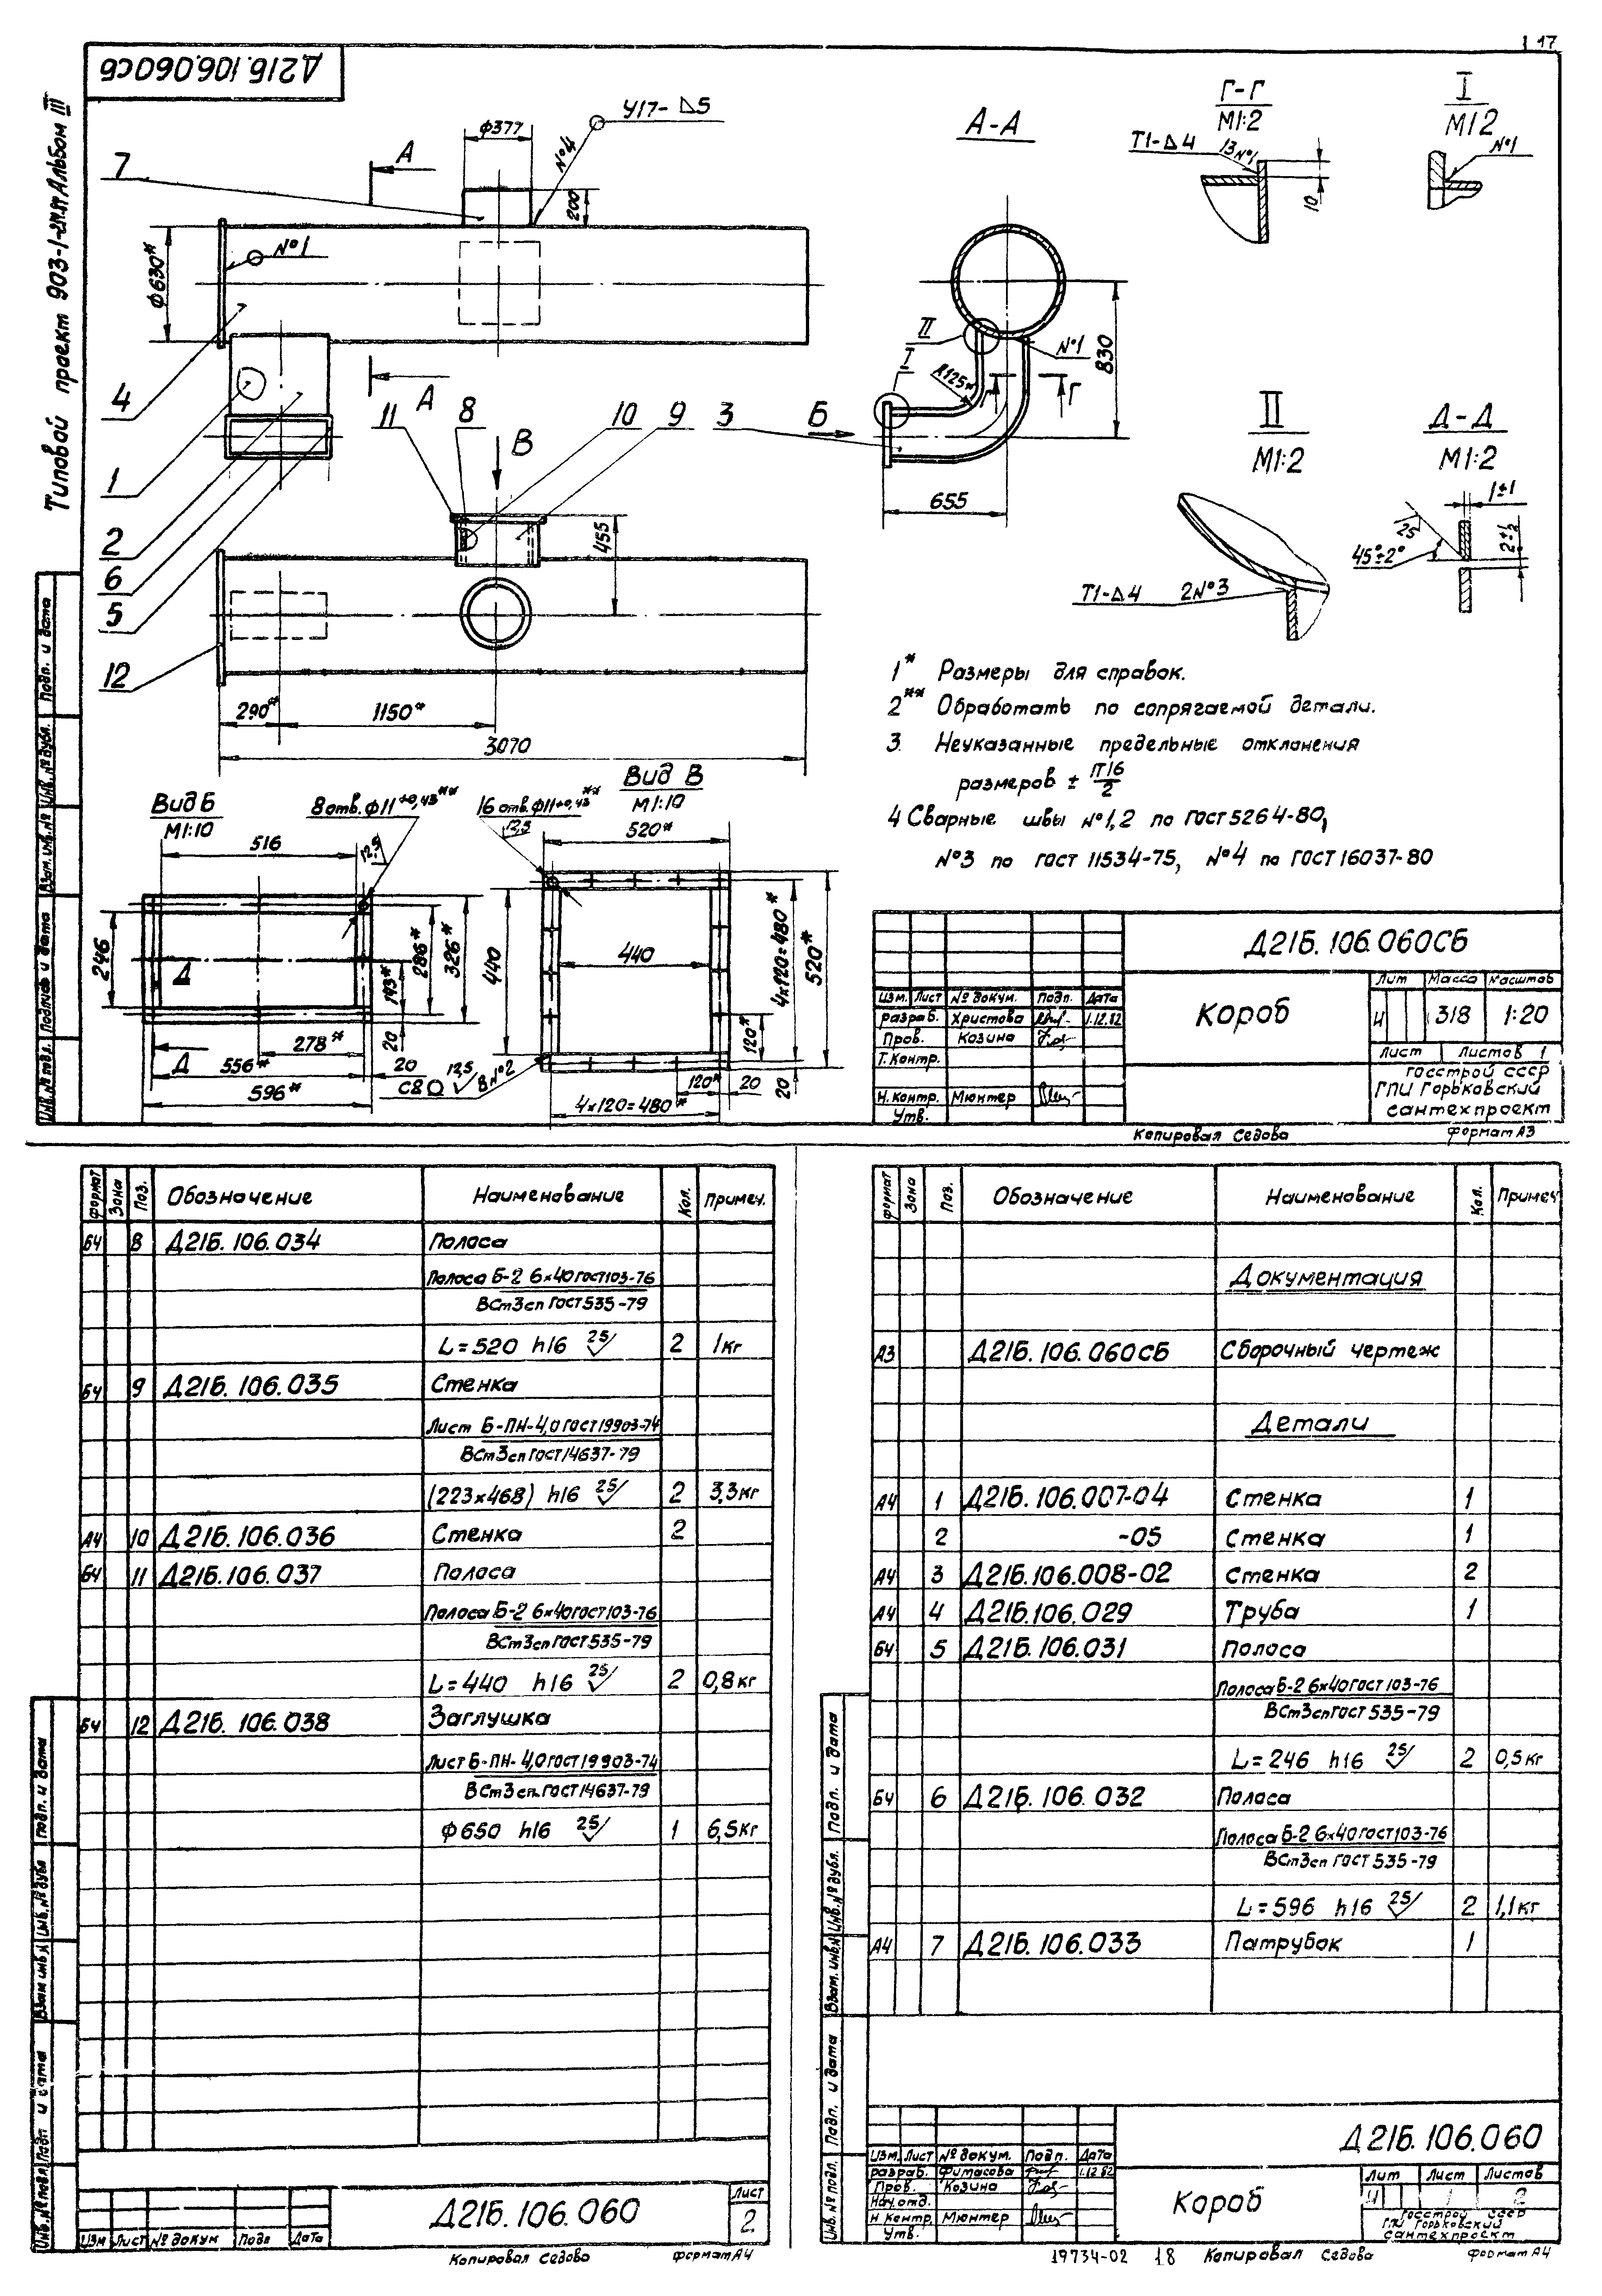 17
Д21Б.106.060СБ
Типовой проект 903-1-
Альбом III
7
А
ф377
№4
У17-△5
200
ф630*
№1
4
1
2
6
5
12
А
11
8
10
9
3
В
455
290*
1150*
3070
А-А
II
I
№1
R125*
Г
830
Б
655
Г-Г
М1:2
Т1-△4
13№1
10
I
М1:2
№1
II
М1:2
Т1-△4 2№3
Д-Д
М1:2
1±1
25
45°±2°
1* Размеры для справок.
2** Обработать по сопрягаемой детали.
3. Неуказанные предельные отклонения
размеров ± IT16/2
4 Сварные швы №1,2 по ГОСТ 5264-80,
№3 по ГОСТ 11534-75, №4 по ГОСТ 16037-80
Вид Б
М1:10
8 отв. ф11+0,43**
12,5
516
246
Д
143*
286*
326*
20
278*
Д
556*
20
596*
Вид В
М1:10
16 отв. ф11+0,43**
12,5
520*
440
440
4х120=480*
520*
120*
20
120*
20
4х120=480*
С8 12,5 8№2
Д21Б.106.060СБ
Короб
Лит Масса Масштаб
И 318 1:20
Лист Листов 1
Госстрой СССР
ГПИ Горьковский
сантехпроект
Изм. Лист № докум. Подп. Дата
Разраб. Христова 1.12.82
Пров. Козина
Т. Контр.
Н. Контр. Мюнтер
Утв.
Копировал Седова Формат А3
Инв. № подл. Подпись и дата Взам. инв. № Инв. № дубл. Подп. и дата
Формат Зона Поз. Обозначение Наименование Кол. Примеч.
БЧ 8 Д21Б.106.034 Полоса
Полоса Б-2 6х40 ГОСТ 103-76
ВСт3сп ГОСТ 535-79
L=520 h16 25 2 1кг
БЧ 9 Д21Б.106.035 Стенка
Лист Б-ПН-4,0 ГОСТ 19903-74
ВСт3сп ГОСТ 14637-79
(223х468) h16 25 2 3,3кг
А4 10 Д21Б.106.036 Стенка 2
БЧ 11 Д21Б.106.037 Полоса
Полоса Б-2 6х40 ГОСТ 103-76
ВСт3сп ГОСТ 535-79
L=440 h16 25 2 0,8кг
БЧ 12 Д21Б.106.038 Заглушка
Лист Б-ПН-4,0 ГОСТ 19903-74
ВСт3сп ГОСТ 14637-79
ф650 h16 25 1 6,5кг
Изм Лист № докум Подп Дата
Д21Б.106.060
Лист
2
Копировал Седова Формат А4
Формат Зона Поз. Обозначение Наименование Кол. Примеч
Документация
А3 Д21Б.106.060СБ Сборочный чертеж
Детали
А4 1 Д21Б.106.007-04 Стенка 1
2 -05 Стенка 1
А4 3 Д21Б.106.008-02 Стенка 2
А4 4 Д21Б.106.029 Труба 1
БЧ 5 Д21Б.106.031 Полоса
Полоса Б-2 6х40 ГОСТ 103-76
ВСт3сп ГОСТ 535-79
L=246 h16 25 2 0,5кг
БЧ 6 Д21Б.106.032 Полоса
Полоса Б-2 6х40 ГОСТ 103-76
ВСт3сп ГОСТ 535-79
L=596 h16 25 2 1,1кг
А4 7 Д21Б.106.033 Патрубок 1
Д21Б.106.060
Изм. Лист № докум. Подп. Дата
Разраб. Фитасова 1.12.82
Пров. Козина
Нач. отд.
Н Контр. Мюнтер
Утв.
Короб
Лит Лист Листов
И 1 2
Госстрой СССР
ГПИ Горьковский
сантехпроект
19734-02 18 Копировал Седова Формат А4